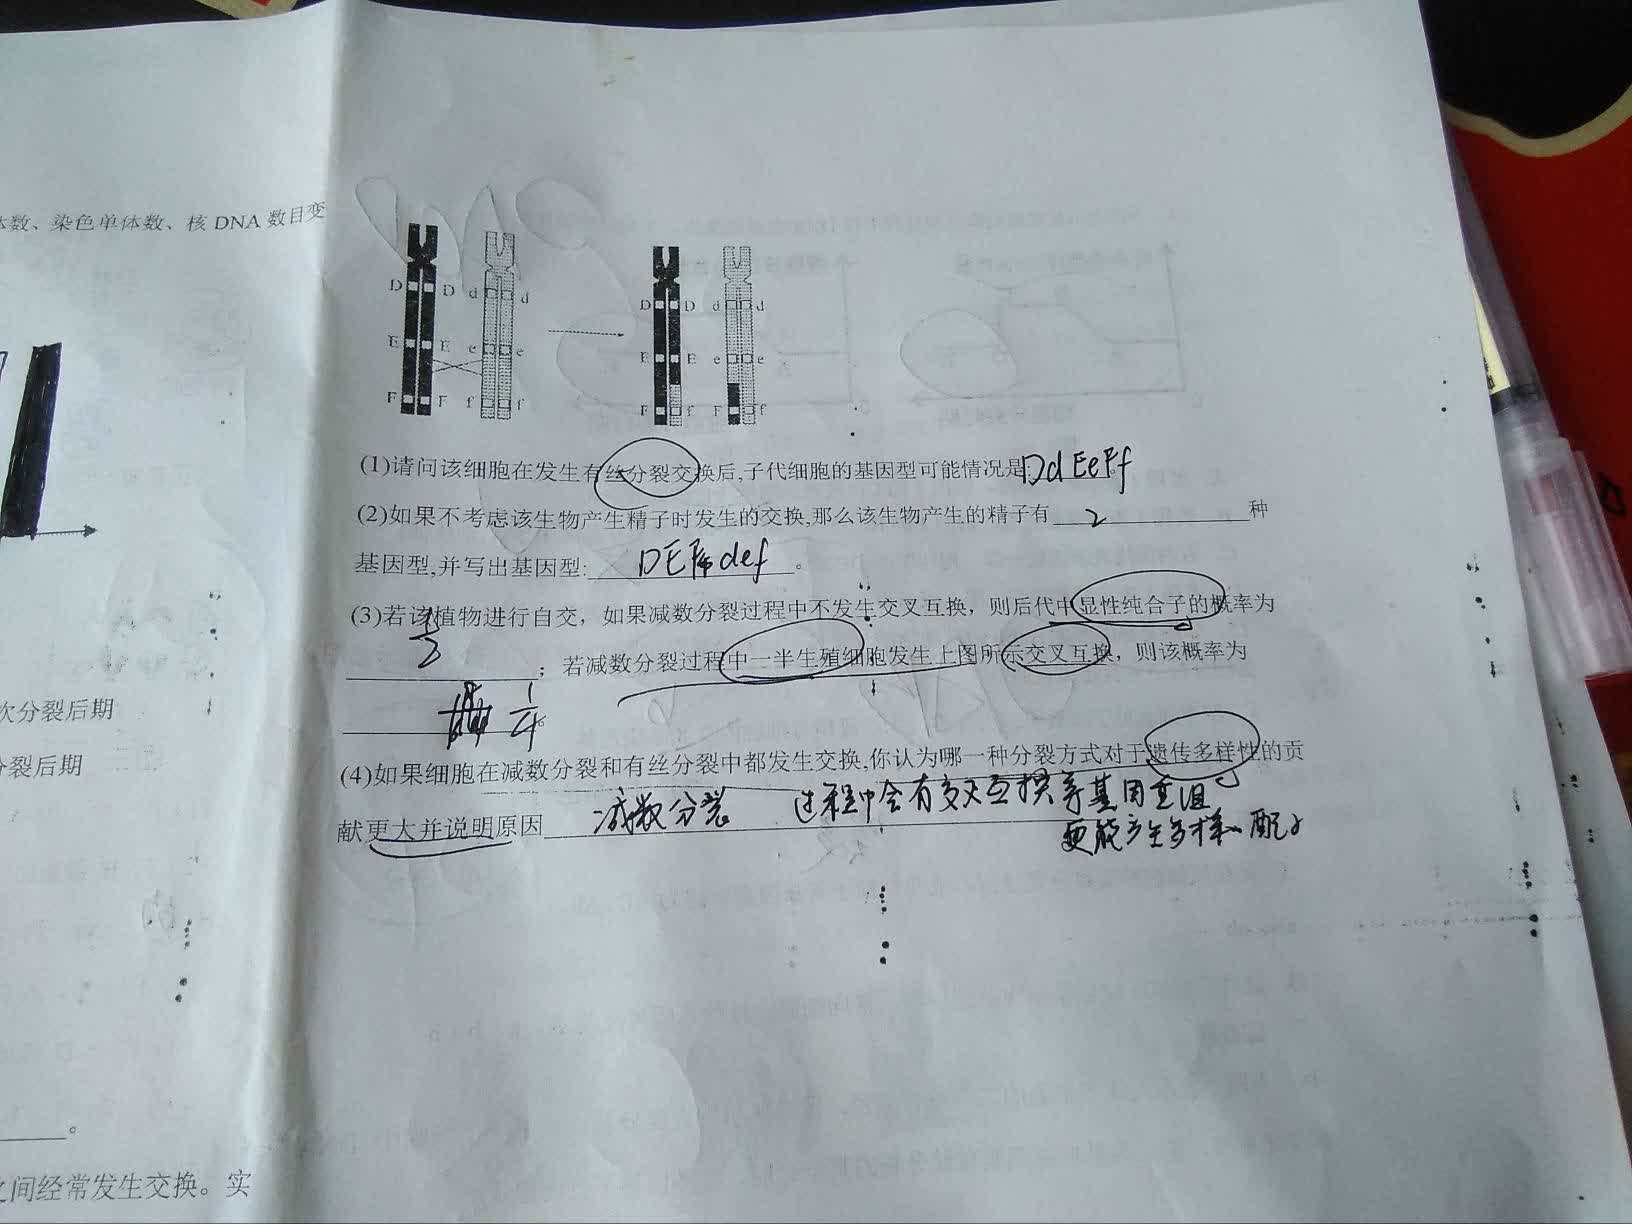 体数、染色单体数、核 DNA 数目变
D D d d
E E e e
F F f f
D D d d
E E e e
F f F f
(1)请问该细胞在发生有丝分裂交换后,子代细胞的基因型可能情况是DdEeFf
(2)如果不考虑该生物产生精子时发生的交换,那么该生物产生的精子有 2 种
基因型,并写出基因型: DEF def 。
(3)若该植物进行自交，如果减数分裂过程中不发生交叉互换，则后代中显性纯合子的概率为
；若减数分裂过程中一半生殖细胞发生上图所示交叉互换，则该概率为
1/4。
次分裂后期
分裂后期
(4)如果细胞在减数分裂和有丝分裂中都发生交换,你认为哪一种分裂方式对于遗传多样性的贡
献更大并说明原因 减数分裂 过程中会有交叉互换等基因重组
更能产生多样 配子
。
之间经常发生交换。实